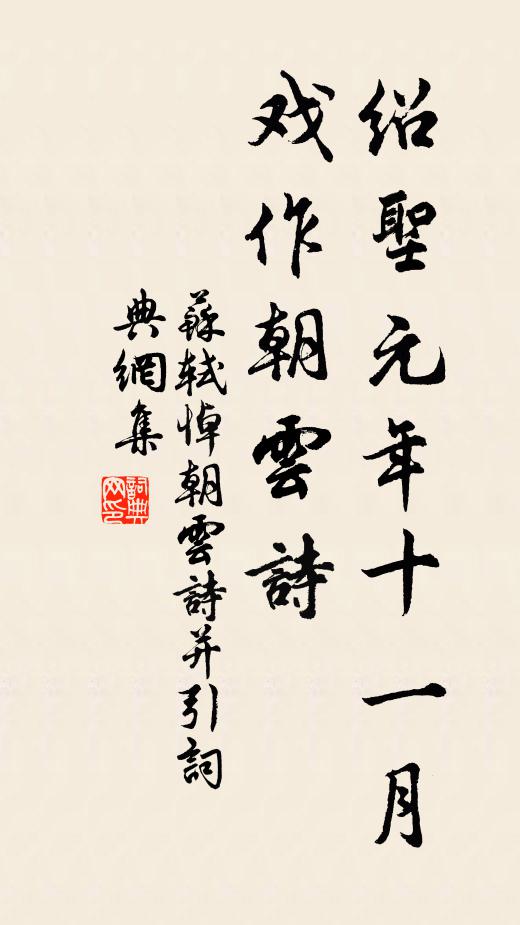 绍聖元年十一月
戏作朝雲詩
蘇軾悼朝雲詩并引詞
典網集
詞典
网印